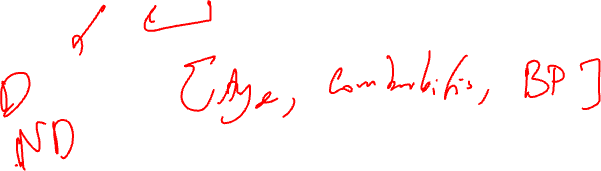 D [Age, Comorbidities, BP]
ND